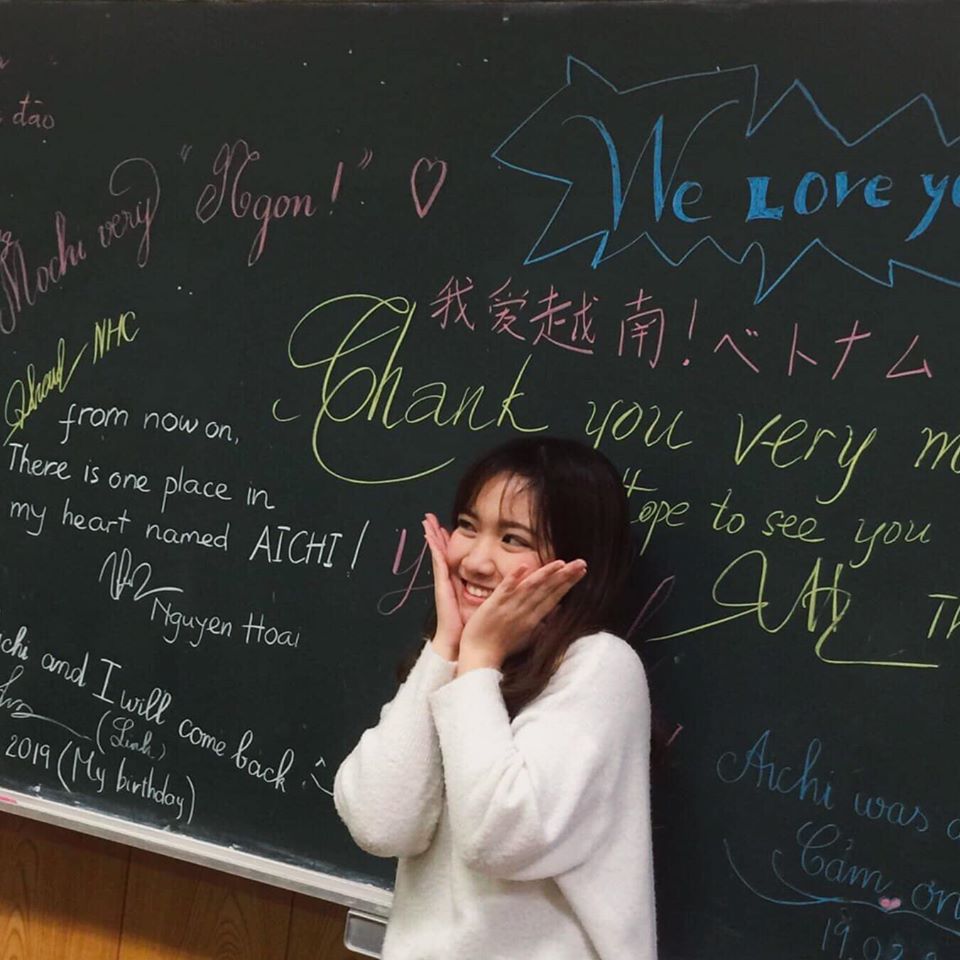 đào
Mochi very "Ngon!"
We Love yo
我爱越南！ベトナム
Thank you very m
NHC
from now on,
There is one place in
my heart named AICHI!
Nguyen Hoai
Hope to see you
Th
chi and I will come back :)
(Linh)
2019 (My birthday)
Aichi was a
Cảm ơn
19.02.2